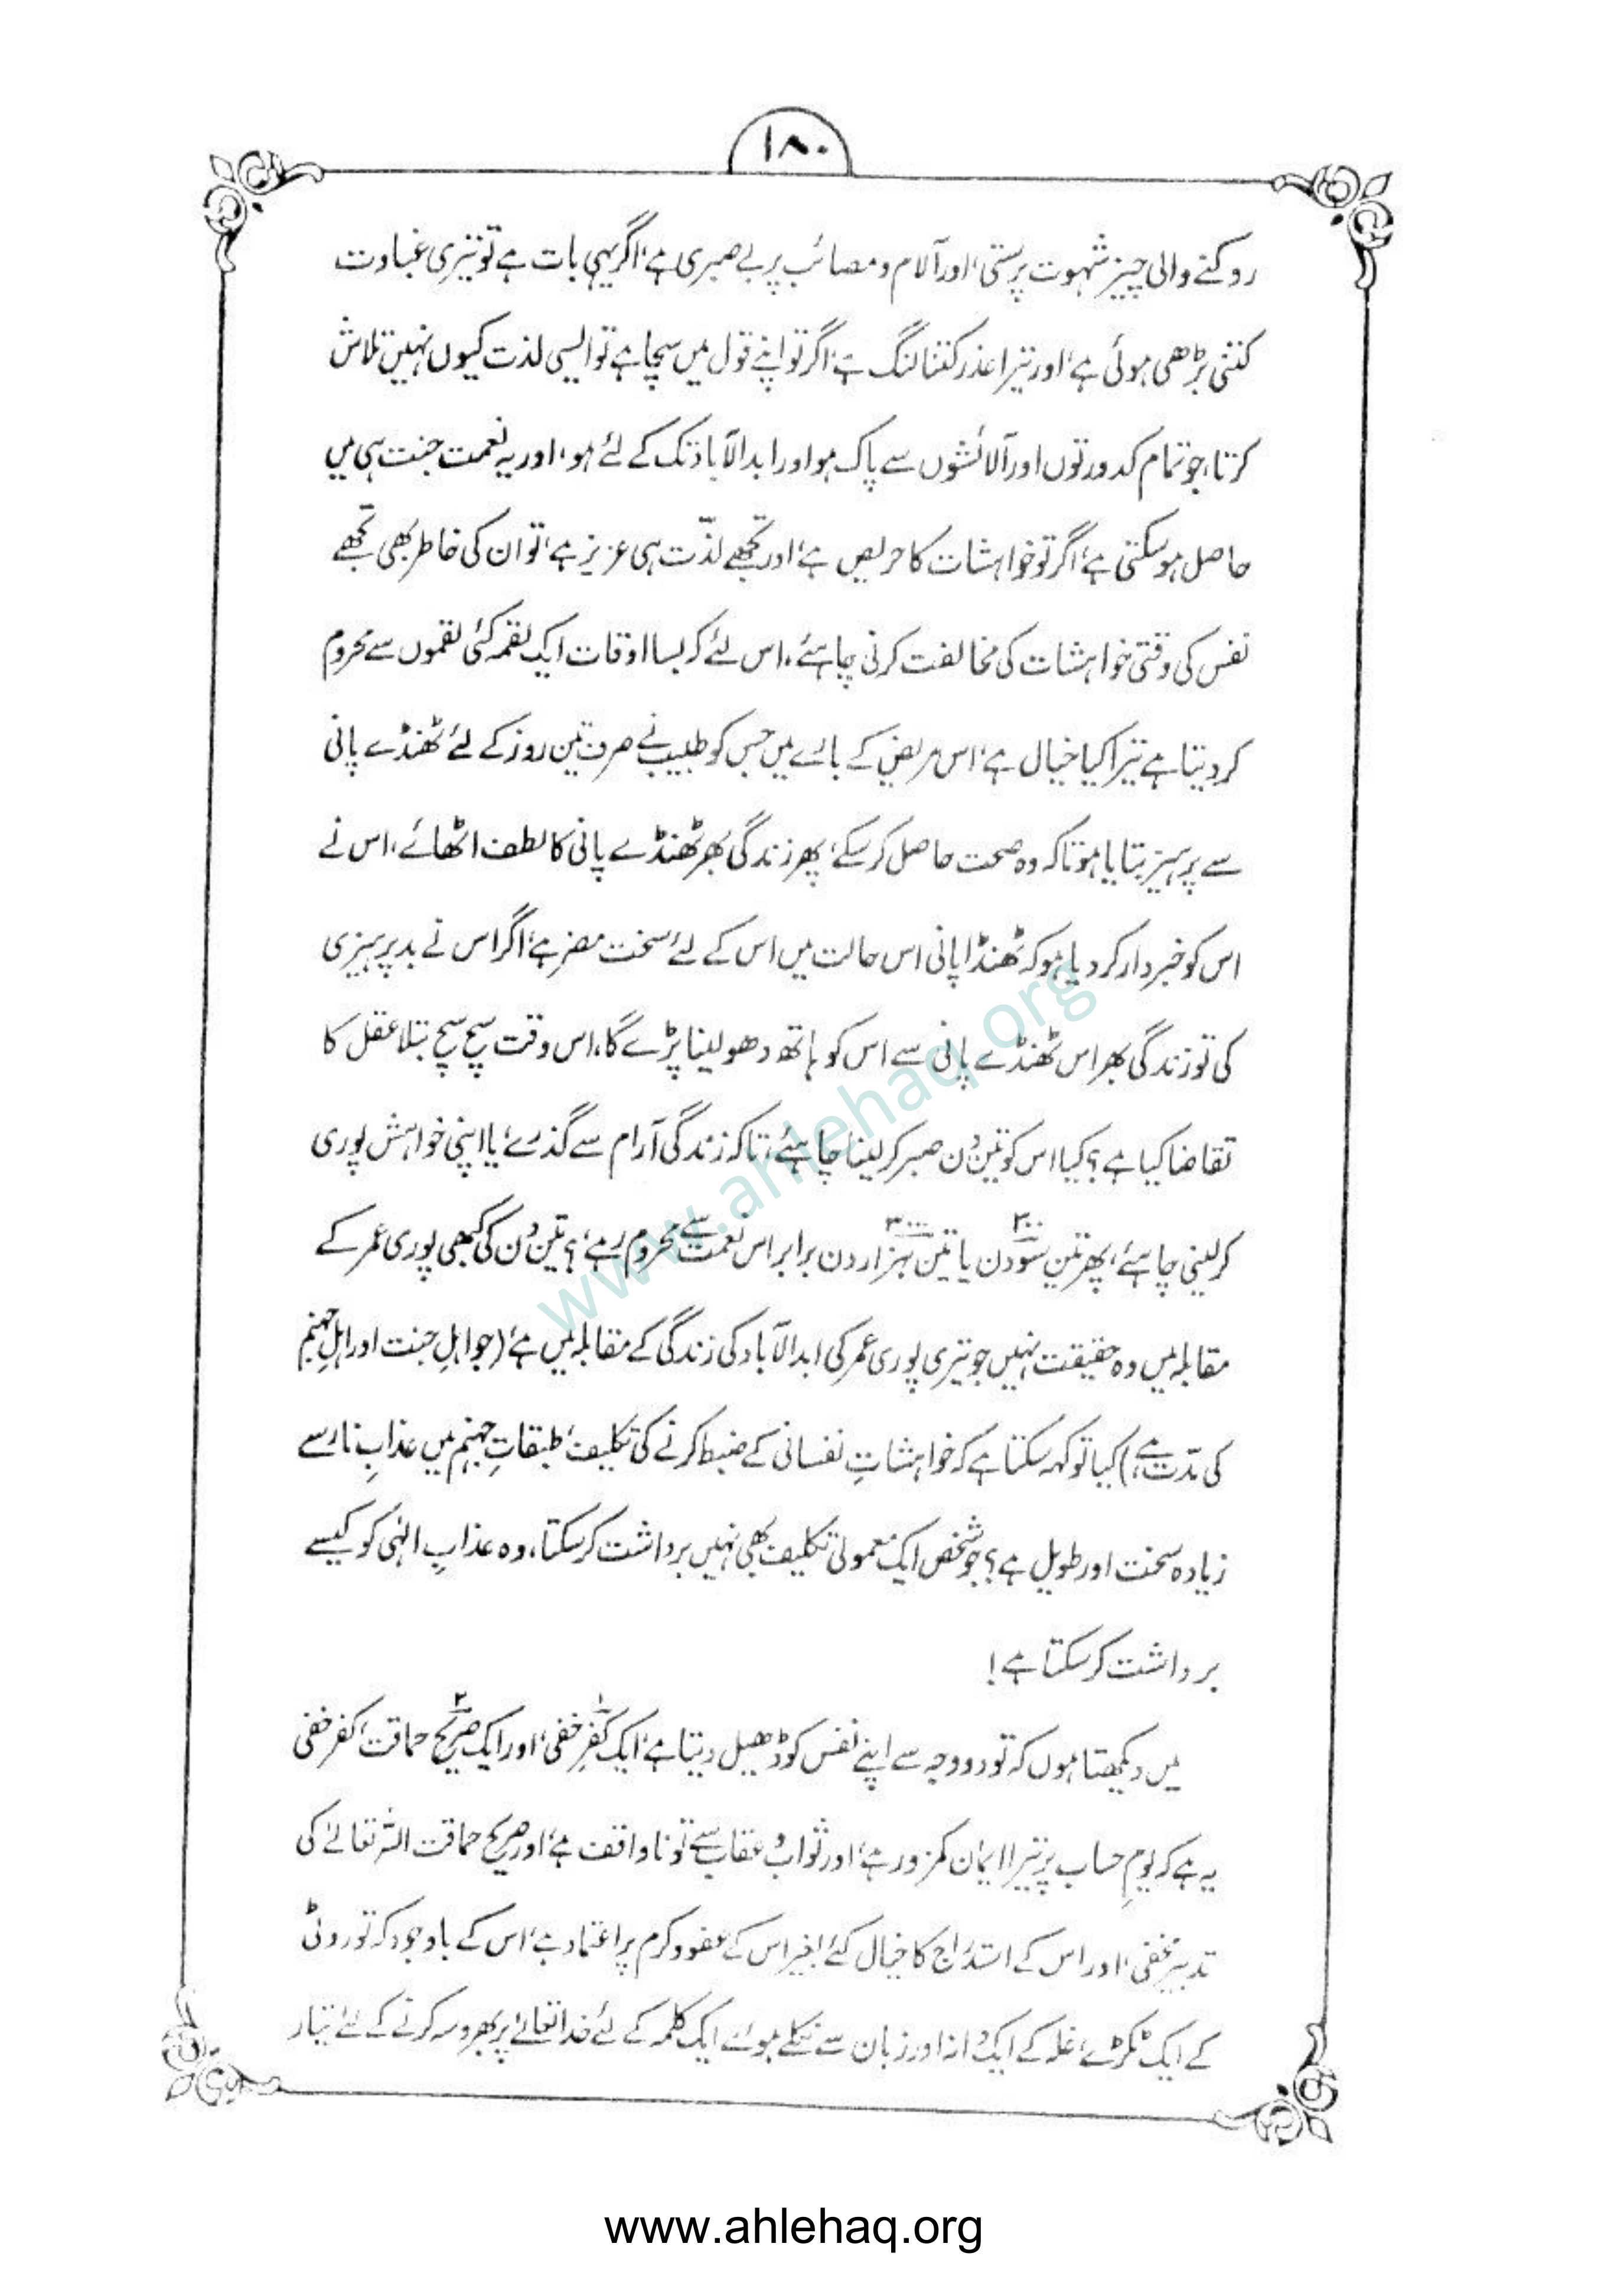 ۱۸۰
روکنے والی چیز شہوت پرستی، اور آلام و مصائب پر بے صبری ہے، اگر یہی بات ہے تو تیری غباوت
کتنی بڑھی ہوئی ہے، اور تیرا عذر کتنا لنگ ہے، اگر تو اپنے قول میں سچا ہے تو ایسی لذت کیوں نہیں تلاش
کرتا، جو تمام کدورتوں اور آلائشوں سے پاک ہو اور ابدالآباد تک کے لئے ہو، اور یہ نعمت جنت ہی میں
حاصل ہو سکتی ہے، اگر تو خواہشات کا حریص ہے، اور تجھے لذّت ہی عزیز ہے، تو ان کی خاطر بھی تجھے
نفس کی وقتی خواہشات کی مخالفت کرنی چاہئے، اس لئے کہ بسا اوقات ایک لقمہ کئی لقموں سے محروم
کر دیتا ہے تیرا کیا خیال ہے، اس مریض کے بارے میں جس کو طبیب نے صرف تین روز کے لئے ٹھنڈے پانی
سے پرہیز بتایا ہو تاکہ وہ صحت حاصل کر سکے، پھر زندگی بھر ٹھنڈے پانی کا لطف اٹھائے، اس نے
اس کو خبردار کر دیا ہو کہ ٹھنڈا پانی اس حالت میں اس کے لئے سخت مضر ہے، اگر اس نے بد پرہیزی
کی تو زندگی بھر اس ٹھنڈے پانی سے اس کو ہاتھ دھو لینا پڑے گا، اس وقت سچ سچ بتلا عقل کا
تقاضا کیا ہے؟ کیا اس کو تین دن صبر کر لینا چاہئے، تاکہ زندگی آرام سے گذرے، یا اپنی خواہش پوری
کر لینی چاہئے، پھر تین سو ۳۰۰ دن یا تین ہزار ۳۰۰۰ دن برابر اس نعمت سے محروم رہے، ؟ تین دن کی بھی پوری عمر کے
مقابلہ میں وہ حقیقت نہیں جو تیری پوری عمر کی ابدالآباد کی زندگی کے مقابلہ میں ہے، (جو اہلِ جنت اور اہلِ جہنم
کی مدّت ہے،) کیا تو کہہ سکتا ہے کہ خواہشاتِ نفسانی کے ضبط کرنے کی تکلیف، طبقاتِ جہنم میں عذابِ نار سے
زیادہ سخت اور طویل ہے؟ جو شخص ایک معمولی تکلیف بھی نہیں برداشت کر سکتا، وہ عذابِ الٰہی کو کیسے
برداشت کر سکتا ہے!
میں دیکھتا ہوں کہ تو دو وجہ سے اپنے نفس کو ڈھیل دیتا ہے، ایک ۱ کفرِ خفی، اور ایک ۲ صریح حماقت، کفر خفی
یہ ہے کہ یومِ حساب پر تیرا ایمان کمزور ہے، اور ثواب و عقاب سے تو ناواقف ہے، اور صریح حماقت اللہ تعالےٰ کی
تدبیر خفی، اور اس کے استدراج کا خیال کئے بغیر اس کے عفو و کرم پر اعتماد ہے، اس کے باوجود کہ تو روٹی
کے ایک ٹکڑے، غلہ کے ایک دانہ اور زبان سے نکلے ہوئے ایک کلمہ کے لئے خدا تعالےٰ پر بھروسہ کرنے کے لئے تیار
www.ahlehaq.org
www.ahlehaq.org